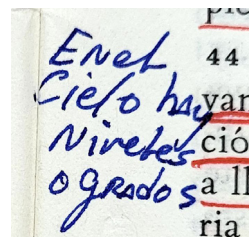 En el
Cielo hay
Niveles
o grados
44
ció
a ll
ria